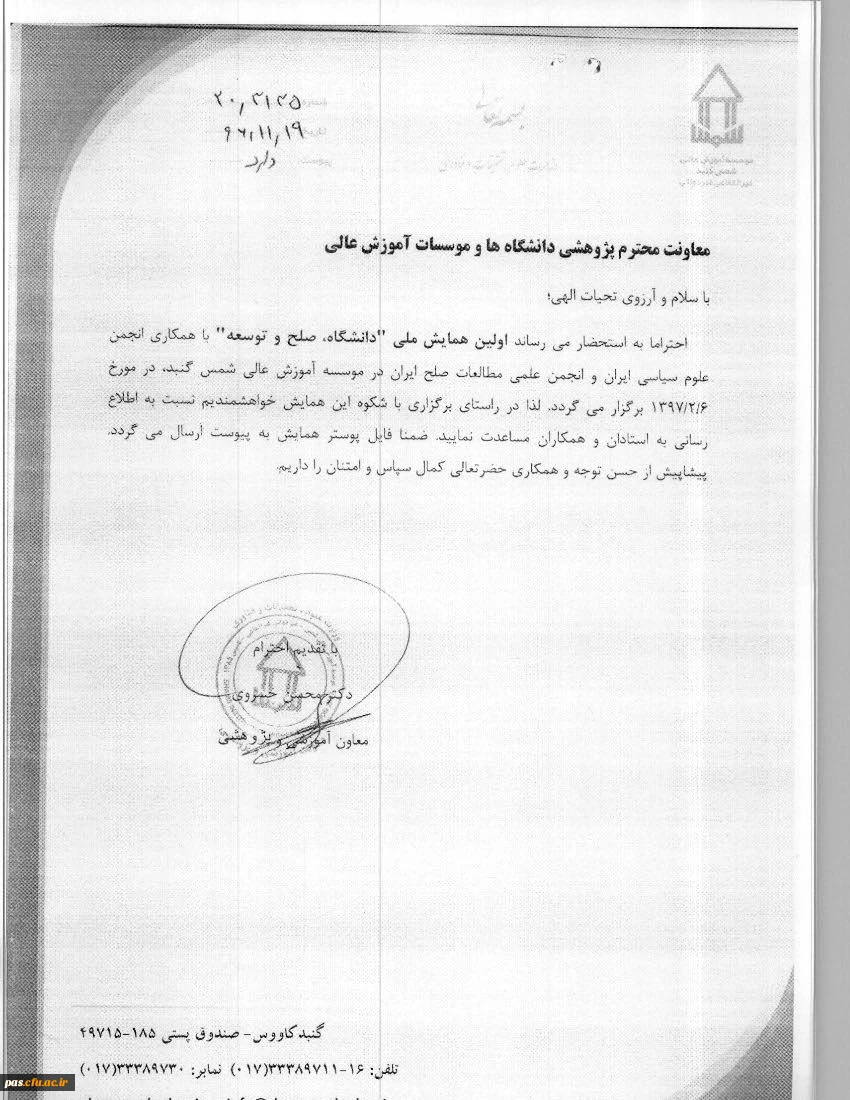 بسمه تعالی
شماره ۲۰/۳۱۴۵
تاریخ ۹۶/۱۱/۱۹
پیوست دارد
شمس
موسسه آموزش عالی
شمس گنبد
غیرانتفاعی غیردولتی
وزارت علوم، تحقیقات و فناوری
معاونت محترم پژوهشی دانشگاه ها و موسسات آموزش عالی
با سلام و آرزوی تحیات الهی؛
احتراما به استحضار می رساند اولین همایش ملی "دانشگاه، صلح و توسعه" با همکاری انجمن
علوم سیاسی ایران و انجمن علمی مطالعات صلح ایران در موسسه آموزش عالی شمس گنبد، در مورخ
۱۳۹۷/۲/۶ برگزار می گردد. لذا در راستای برگزاری با شکوه این همایش خواهشمندیم نسبت به اطلاع
رسانی به استادان و همکاران مساعدت نمایید. ضمنا فایل پوستر همایش به پیوست ارسال می گردد.
پیشاپیش از حسن توجه و همکاری حضرتعالی کمال سپاس و امتنان را داریم.
با تقدیم احترام
دکتر محسن خسروی
معاون آموزشی و پژوهشی
گنبدکاووس- صندوق پستی ۱۸۵-۴۹۷۱۵
تلفن: ۱۶-۳۳۳۸۹۷۱۱(۰۱۷) نمابر: ۳۳۳۸۹۷۳۰(۰۱۷)
pas.cfu.ac.ir